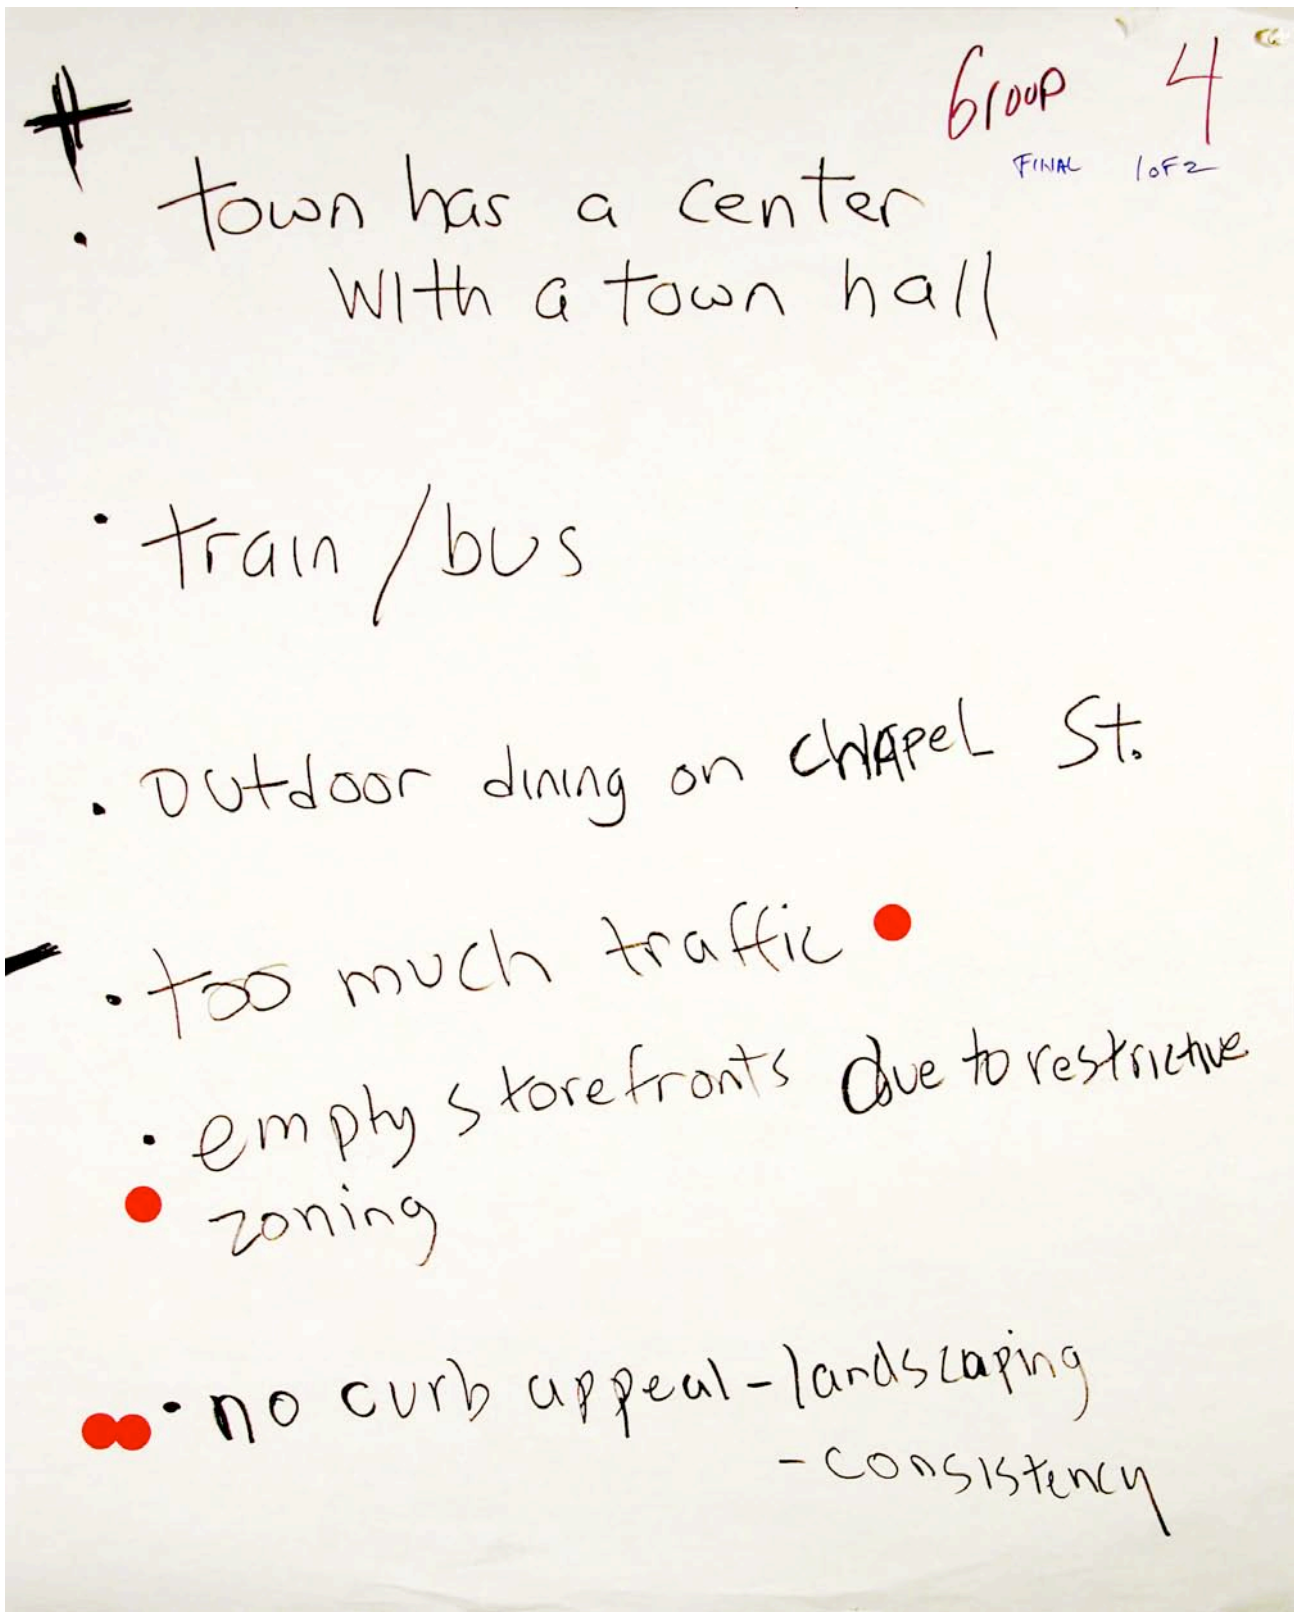 +
Group 4
FINAL 1 OF 2
• town has a center
with a town hall
• train / bus
• outdoor dining on CHAPEL St.
-
• too much traffic
• empty storefronts due to restrictive
zoning
• no curb appeal - landscaping
- consistency